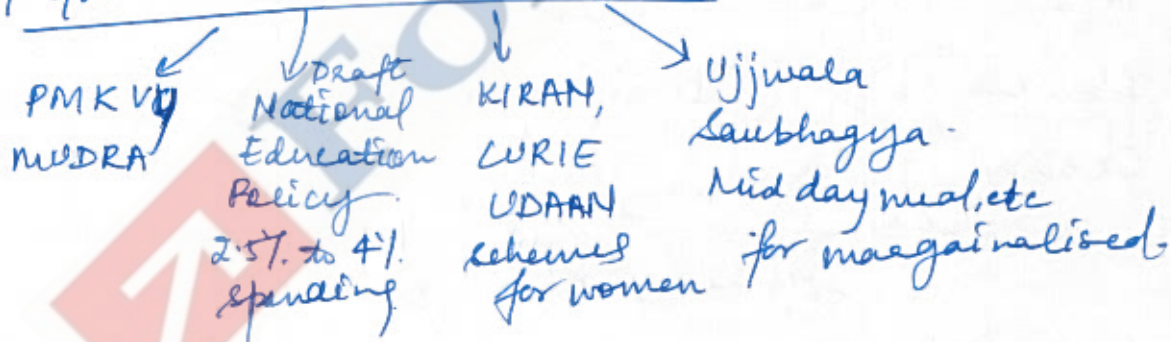 PMKVY
MUDRA
Draft
National
Education
Policy.
2.5%. to 4%.
spending
KIRAN,
CURIE
UDAAN
schemes
for women
Ujjwala
Saubhagya.
Mid day meal, etc
for maegainalised.
FO